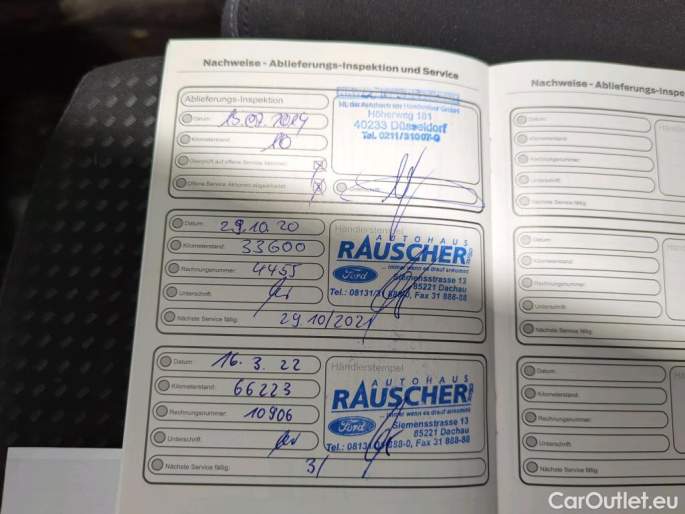 Nachweise - Ablieferungs-Inspektion und Service
Ablieferungs-Inspektion
Datum:
Kilometerstand: 10
Überprüft auf offene Service Aktionen
Offene Service Aktionen abgearbeitet
Höherweg 181
40233 Düsseldorf
Tel. 0211/31007-0
Datum: 29.10.20
Kilometerstand: 33600
Rechnungsnummer: 4455
Unterschrift:
Nächste Service fällig: 29.10/2021
Händlerstempel
AUTOHAUS
RAUSCHER
... immer wenn es drauf ankommt
Ford
Siemensstrasse 13
85221 Dachau
Tel.: 08131/31 888-0, Fax 31 888-88
Datum: 16.3.22
Kilometerstand: 66223
Rechnungsnummer: 10906
Unterschrift:
Nächste Service fällig: 3/
Händlerstempel
AUTOHAUS
RAUSCHER
... immer wenn es drauf ankommt
Ford
Siemensstrasse 13
85221 Dachau
Tel.: 08131/ 888-0, Fax 31 888-88
Nachweise - Ablieferungs-Inspe
Datum:
Kilometerstand:
Rechnungsnummer:
Unterschrift:
Nächste Service fällig:
Datum:
Kilometerstand:
Rechnungsnummer:
Unterschrift:
Nächste Service fällig:
Datum:
Kilometerstand:
Rechnungsnummer:
Unterschrift:
Nächste Service fällig:
CarOutlet.eu